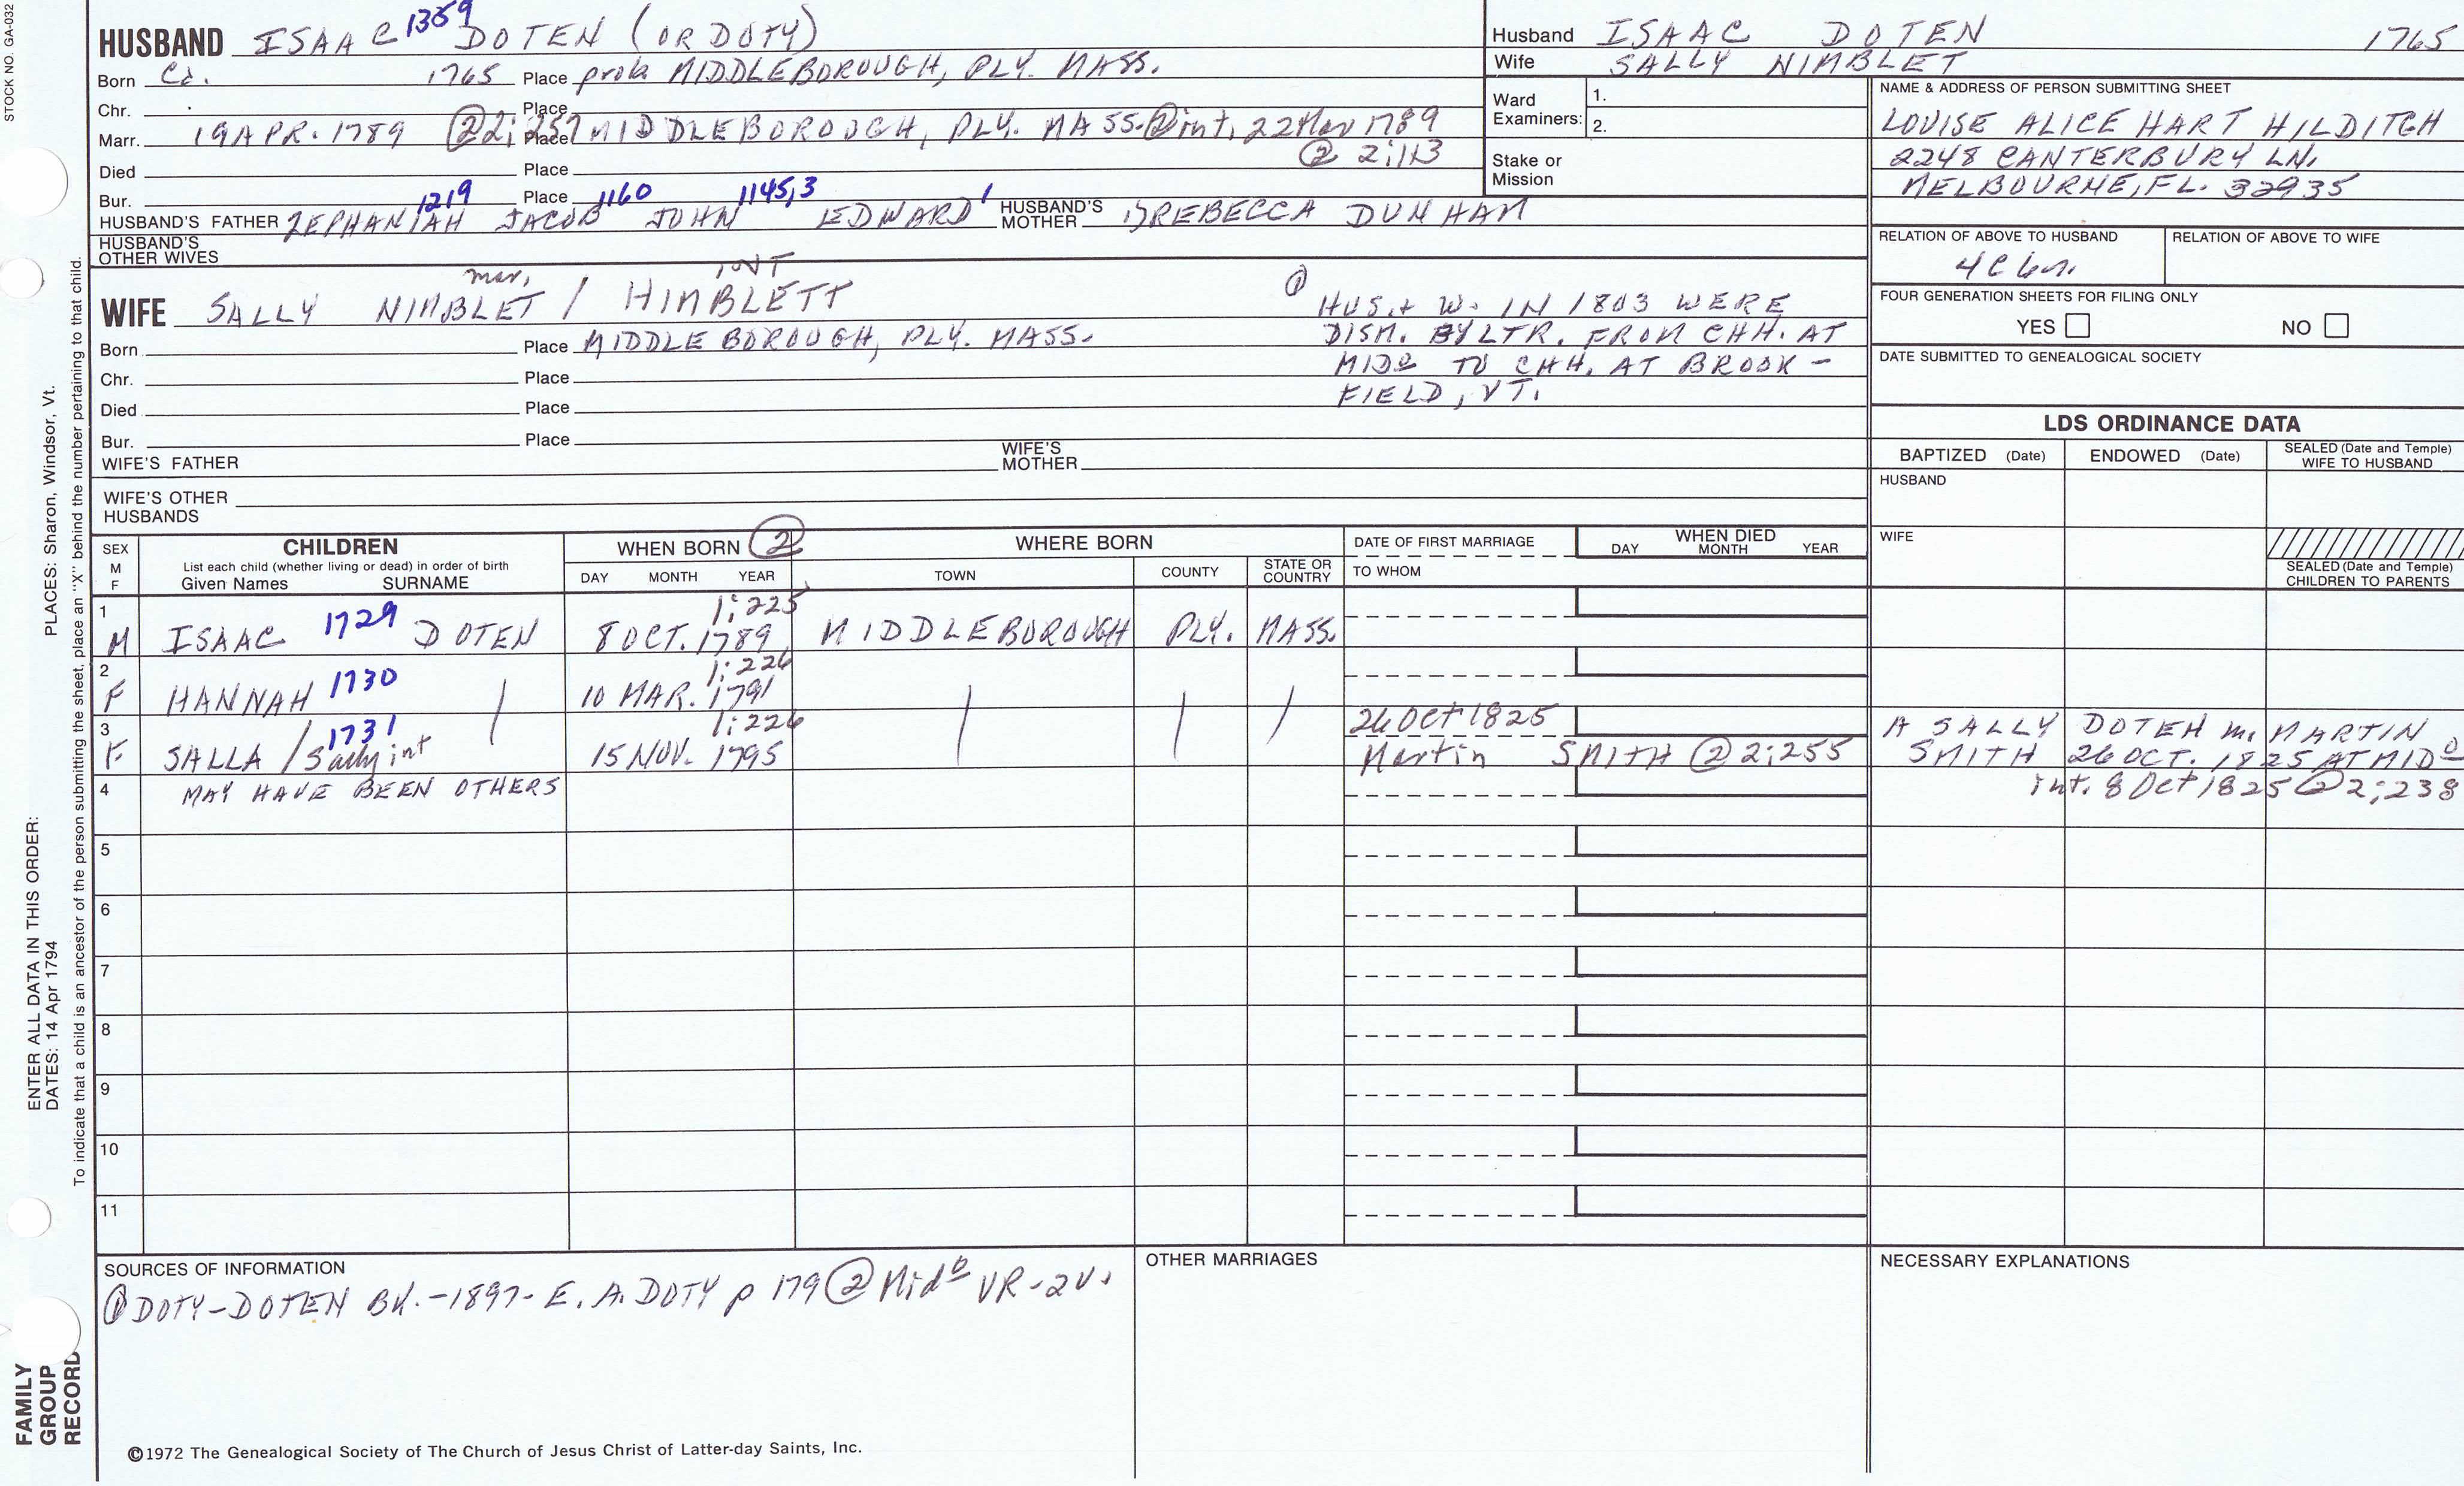 STOCK NO. GA-032
HUSBAND ISAAC 1359 DOTEN (OR DOTY)
Born Ca. 1765 Place prob MIDDLEBOROUGH, PLY. MASS.
Chr. Place
Marr. 19 APR. 1789 ② 2; 257 Place MIDDLEBOROUGH, PLY. MASS. ② int, 22 Mar 1789
② 2:113
Died Place
Bur. Place
1219 1160 1145,3 1
HUSBAND'S FATHER ZEPHANIAH JACOB JOHN EDWARD HUSBAND'S MOTHER 1) REBECCA DUNHAM
HUSBAND'S OTHER WIVES
mar, INT
WIFE SALLY NIMBLET / HIMBLETT
Born Place MIDDLEBOROUGH, PLY. MASS.
Chr. Place
Died Place
Bur. Place
WIFE'S FATHER WIFE'S MOTHER
WIFE'S OTHER HUSBANDS
① HUS. + W. IN 1803 WERE
DISM. BY LTR. FROM CHH. AT
MIDo TO CHH. AT BROOK-
FIELD, VT.
Husband ISAAC DOTEN 1765
Wife SALLY NIMBLET
Ward Examiners: 1.
2.
Stake or Mission
NAME & ADDRESS OF PERSON SUBMITTING SHEET
LOUISE ALICE HART HILDITCH
2248 CANTERBURY LN.
MELBOURNE, FL. 32935
RELATION OF ABOVE TO HUSBAND RELATION OF ABOVE TO WIFE
4C 6r.
FOUR GENERATION SHEETS FOR FILING ONLY
YES NO
DATE SUBMITTED TO GENEALOGICAL SOCIETY
LDS ORDINANCE DATA
BAPTIZED (Date) ENDOWED (Date) SEALED (Date and Temple) WIFE TO HUSBAND
HUSBAND
WIFE
SEALED (Date and Temple) CHILDREN TO PARENTS
SEX M F CHILDREN WHEN BORN ② WHERE BORN DATE OF FIRST MARRIAGE WHEN DIED
List each child (whether living or dead) in order of birth
Given Names SURNAME DAY MONTH YEAR TOWN COUNTY STATE OR COUNTRY TO WHOM DAY MONTH YEAR
1 1:225
M ISAAC 1729 DOTEN 8 OCT. 1789 MIDDLEBOROUGH PLY. MASS.
2 1:226
F HANNAH 1730 / 10 MAR. 1791 / / /
3 1731 1:226 26 Oct 1825
F. SALLA / Sally int 15 NOV. 1795 Martin SMITH ② 2:255
A SALLY DOTEN m. MARTIN
SMITH 26 OCT. 1825 AT MIDo
int. 8 Oct 1825 ② 2:238
4 MAY HAVE BEEN OTHERS
5
6
7
8
9
10
11
SOURCES OF INFORMATION
① DOTY-DOTEN BK.-1897- E. A. DOTY p 179 ② Mido VR-2V.
OTHER MARRIAGES
NECESSARY EXPLANATIONS
©1972 The Genealogical Society of The Church of Jesus Christ of Latter-day Saints, Inc.
FAMILY GROUP RECORD
ENTER ALL DATA IN THIS ORDER:
DATES: 14 Apr 1794 PLACES: Sharon, Windsor, Vt.
To indicate that a child is an ancestor of the person submitting the sheet, place an "X" behind the number pertaining to that child.